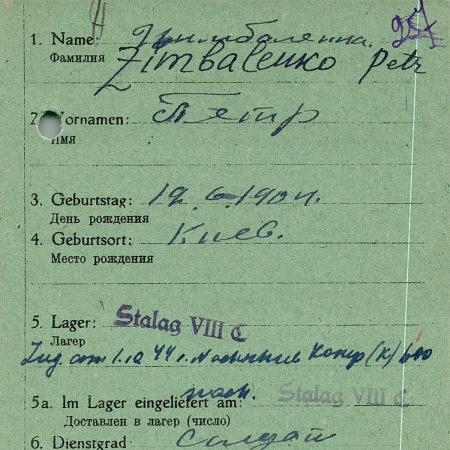 1. Name: Цимбаленко. 257
Фамилия Zimbalenko Petr
2. Vornamen: Петр
Имя
3. Geburtstag: 19.6.1904.
День рождения
4. Geburtsort: Киев.
Место рождения
5. Lager: Stalag VIII C
Лагер
1.10 44
5a. Im Lager eingeliefert am: Stalag VIII C
Доставлен в лагер (число)
6. Dienstgrad солдат